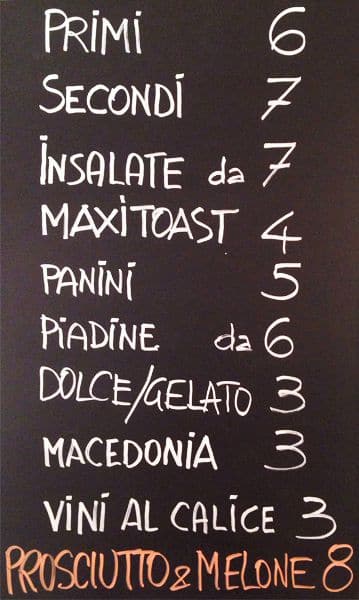 PRIMI 6
SECONDI 7
INSALATE da 7
MAXITOAST 4
PANINI 5
PIADINE da 6
DOLCE/GELATO 3
MACEDONIA 3
VINI AL CALICE 3
PROSCIUTTO & MELONE 8